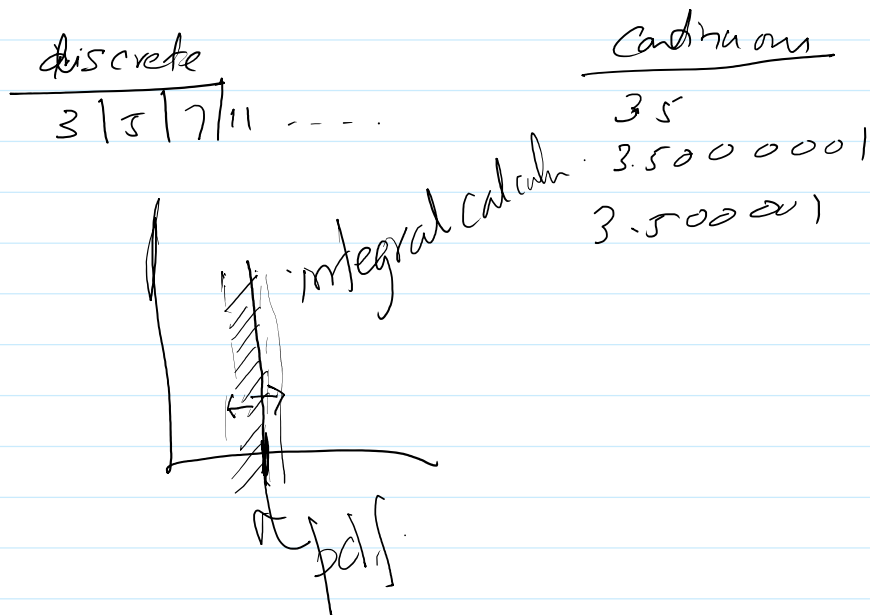 discrete
3 | 5 | 7 | 11 - - - - .
Continuous
3 5
3.5000001
3.500001
integral calculu
pdf